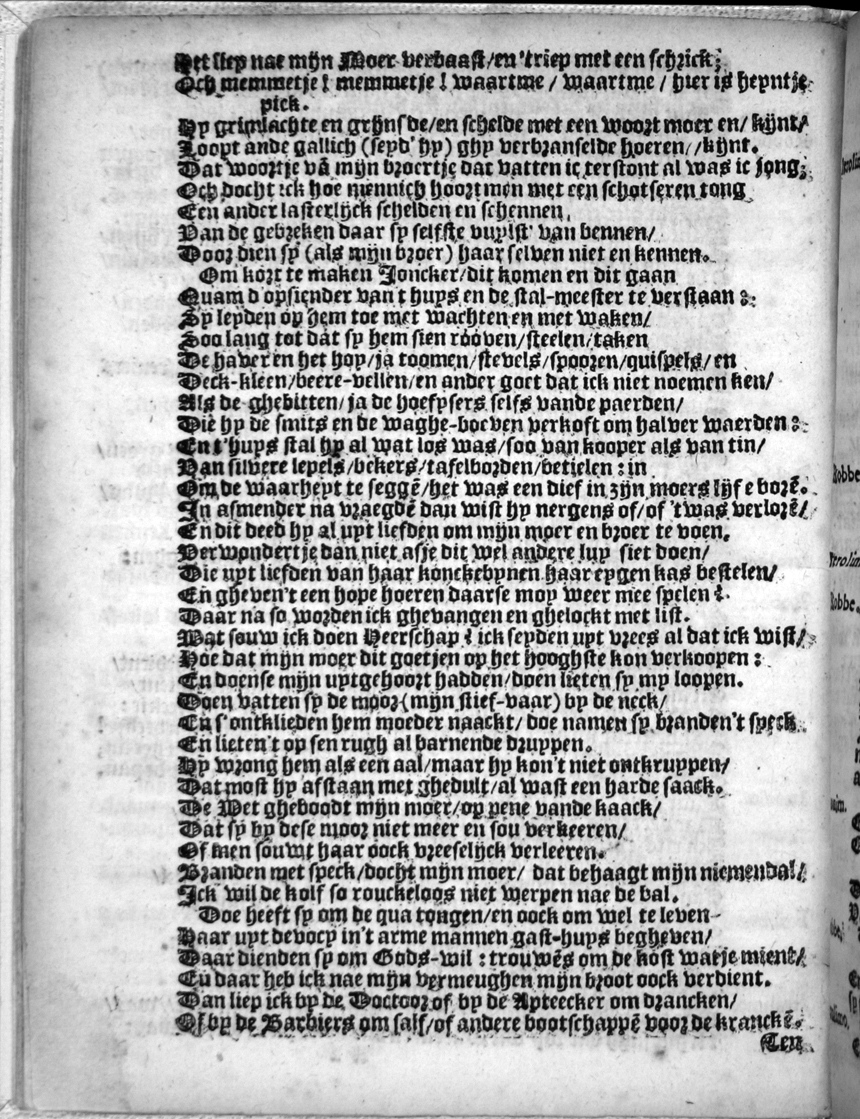 Het liep nae mijn Moer verbaast/en 'triep met een schrick;
Och memmetje! memmetje! waartme / waartme / hier is heyntje
pick.
Hy grimlachte en grijnsde/en schelde met een woort moer en/ kijnt/
Loopt ande gallich (seyd' hy) ghy verbranselde hoeren//kijnt.
Dat woortje vā mijn broertje dat vatten ic terstont al was ic jong;
Och docht ick hoe mennich hoort men met een schotseren tong
Een ander lasterlijck schelden en schennen,
Van de gebreken daar sy selfste vuylst' van bennen/
Door dien sy (als mijn broer) haar selven niet en kennen.
Om kort te maken Joncker/dit komen en dit gaan
Quam d'opsiender van't huys en de stal-meester te verstaan:
Sy leyden op hem toe met wachten en met waken/
Soo lang tot dat sy hem sien rooven/steelen/taken
De haver en het hoy/ja toomen/stevels/spooren/quispels/en
Deck-kleen/beere-vellen/en ander goet dat ick niet noemen ken/
Als de ghebitten/ja de hoefysers selfs vande paerden/
Die hy de smits en de waghe-boeven verkoft om halver waerden:
En t'huys stal hy al wat los was/soo van kooper als van tin/
Van silvere lepels/bekers/tafelborden/betielen: in
Om de waarheyt te seggē/het was een dief in zijn moers lijf e borē.
In asmender na vraegdē dan wist hy nergens of/of 'twas verlorē/
En dit deed hy al uyt liefden om mijn moer en broer te voen.
Verwondert je dan niet asje dit wel andere luy siet doen/
Die uyt liefden van haar konckebynen haar eygen kas bestelen/
En gheven't een hope hoeren daarse moy weer mee spelen?
Daar na so worden ick ghevangen en ghelockt met list.
Wat souw ick doen Heerschap? ick seyden uyt vrees al dat ick wist/
Hoe dat mijn moer dit goetjen op het hooghste kon verkoopen:
En doense mijn uytgehoort hadden/doen lieten sy my loopen.
Doen vatten sy de moor (mijn stief-vaar) by de neck/
En s'ontklieden hem moeder naackt/ doe namen sy branden't speck
En lieten't op sen rugh al barnende druppen.
Hy wrong hem als een aal/maar hy kon't niet ontkruppen/
Dat most hy afstaan met ghedult/al wast een harde saack.
De Wet gheboodt mijn moer/op pene vande kaack/
Dat sy by dese moor niet meer en sou verkeeren/
Of men souwt haar oock vreeselijck verleeren.
Branden met speck/docht mijn moer/ dat behaagt mijn niemendal/
Ick wil de kolf so rouckeloos niet werpen nae de bal.
Doe heeft sy om de qua tongen/en oock om wel te leven
Haar uyt devocy in't arme mannen gast-huys begheven/
Daar dienden sy om Gods-wil: trouwēs om de kost watje mient/
En daar heb ick nae mijn vermeughen mijn broot oock verdient.
Dan liep ick by de Doctoor of by de Apteecker om drancken/
Of by de Barbiers om salf/of andere bootschappē voor de kranckē.
Ten